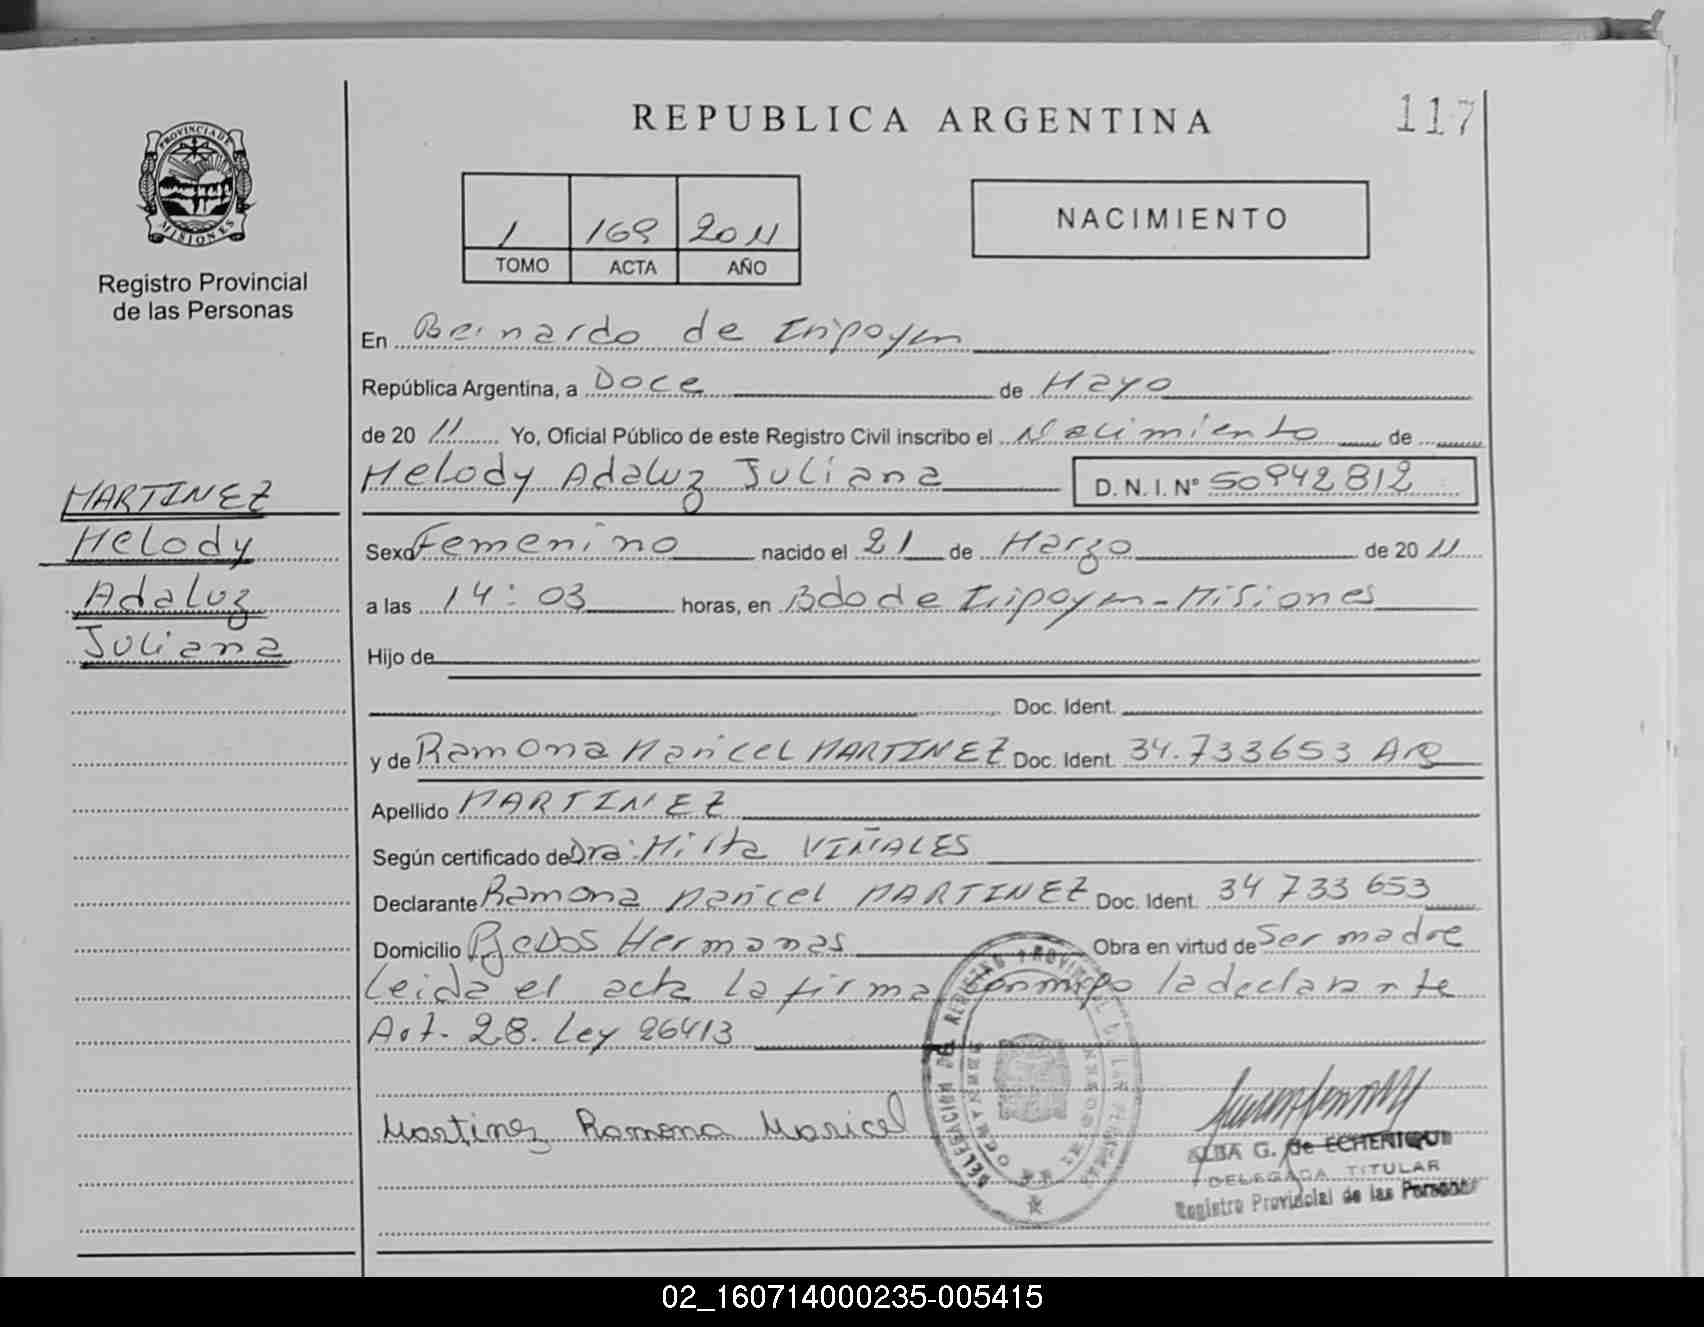 REPUBLICA ARGENTINA
117
PROVINCIA DE
MISIONES
Registro Provincial
de las Personas
1 169 2011
TOMO ACTA AÑO
NACIMIENTO
En Bernardo de Irigoyen
República Argentina, a Doce de Mayo
de 20 11 Yo, Oficial Público de este Registro Civil inscribo el Nacimiento de
Melody Adaluz Juliana D. N. I. N° 50942812
MARTINEZ
Melody
Adaluz
Juliana
Sexo Femenino nacido el 21 de Marzo de 20 11
a las 14:03 horas, en Bdo de Irigoyen - Misiones
Hijo de
Doc. Ident.
y de Ramona Maricel MARTINEZ Doc. Ident. 34.733653 Arg
Apellido MARTINEZ
Según certificado de Dra: Mirta VIÑALES
Declarante Ramona Maricel MARTINEZ Doc. Ident. 34 733 653
Domicilio Pje Dos Hermanas Obra en virtud de Ser madre
Leida el acta la firma conmigo la declarante
Art. 28. Ley 26413
Martinez Ramona Maricel
ALBA G. de ECHENIQUE
DELEGADA TITULAR
Registro Provincial de las Personas
02_160714000235-005415